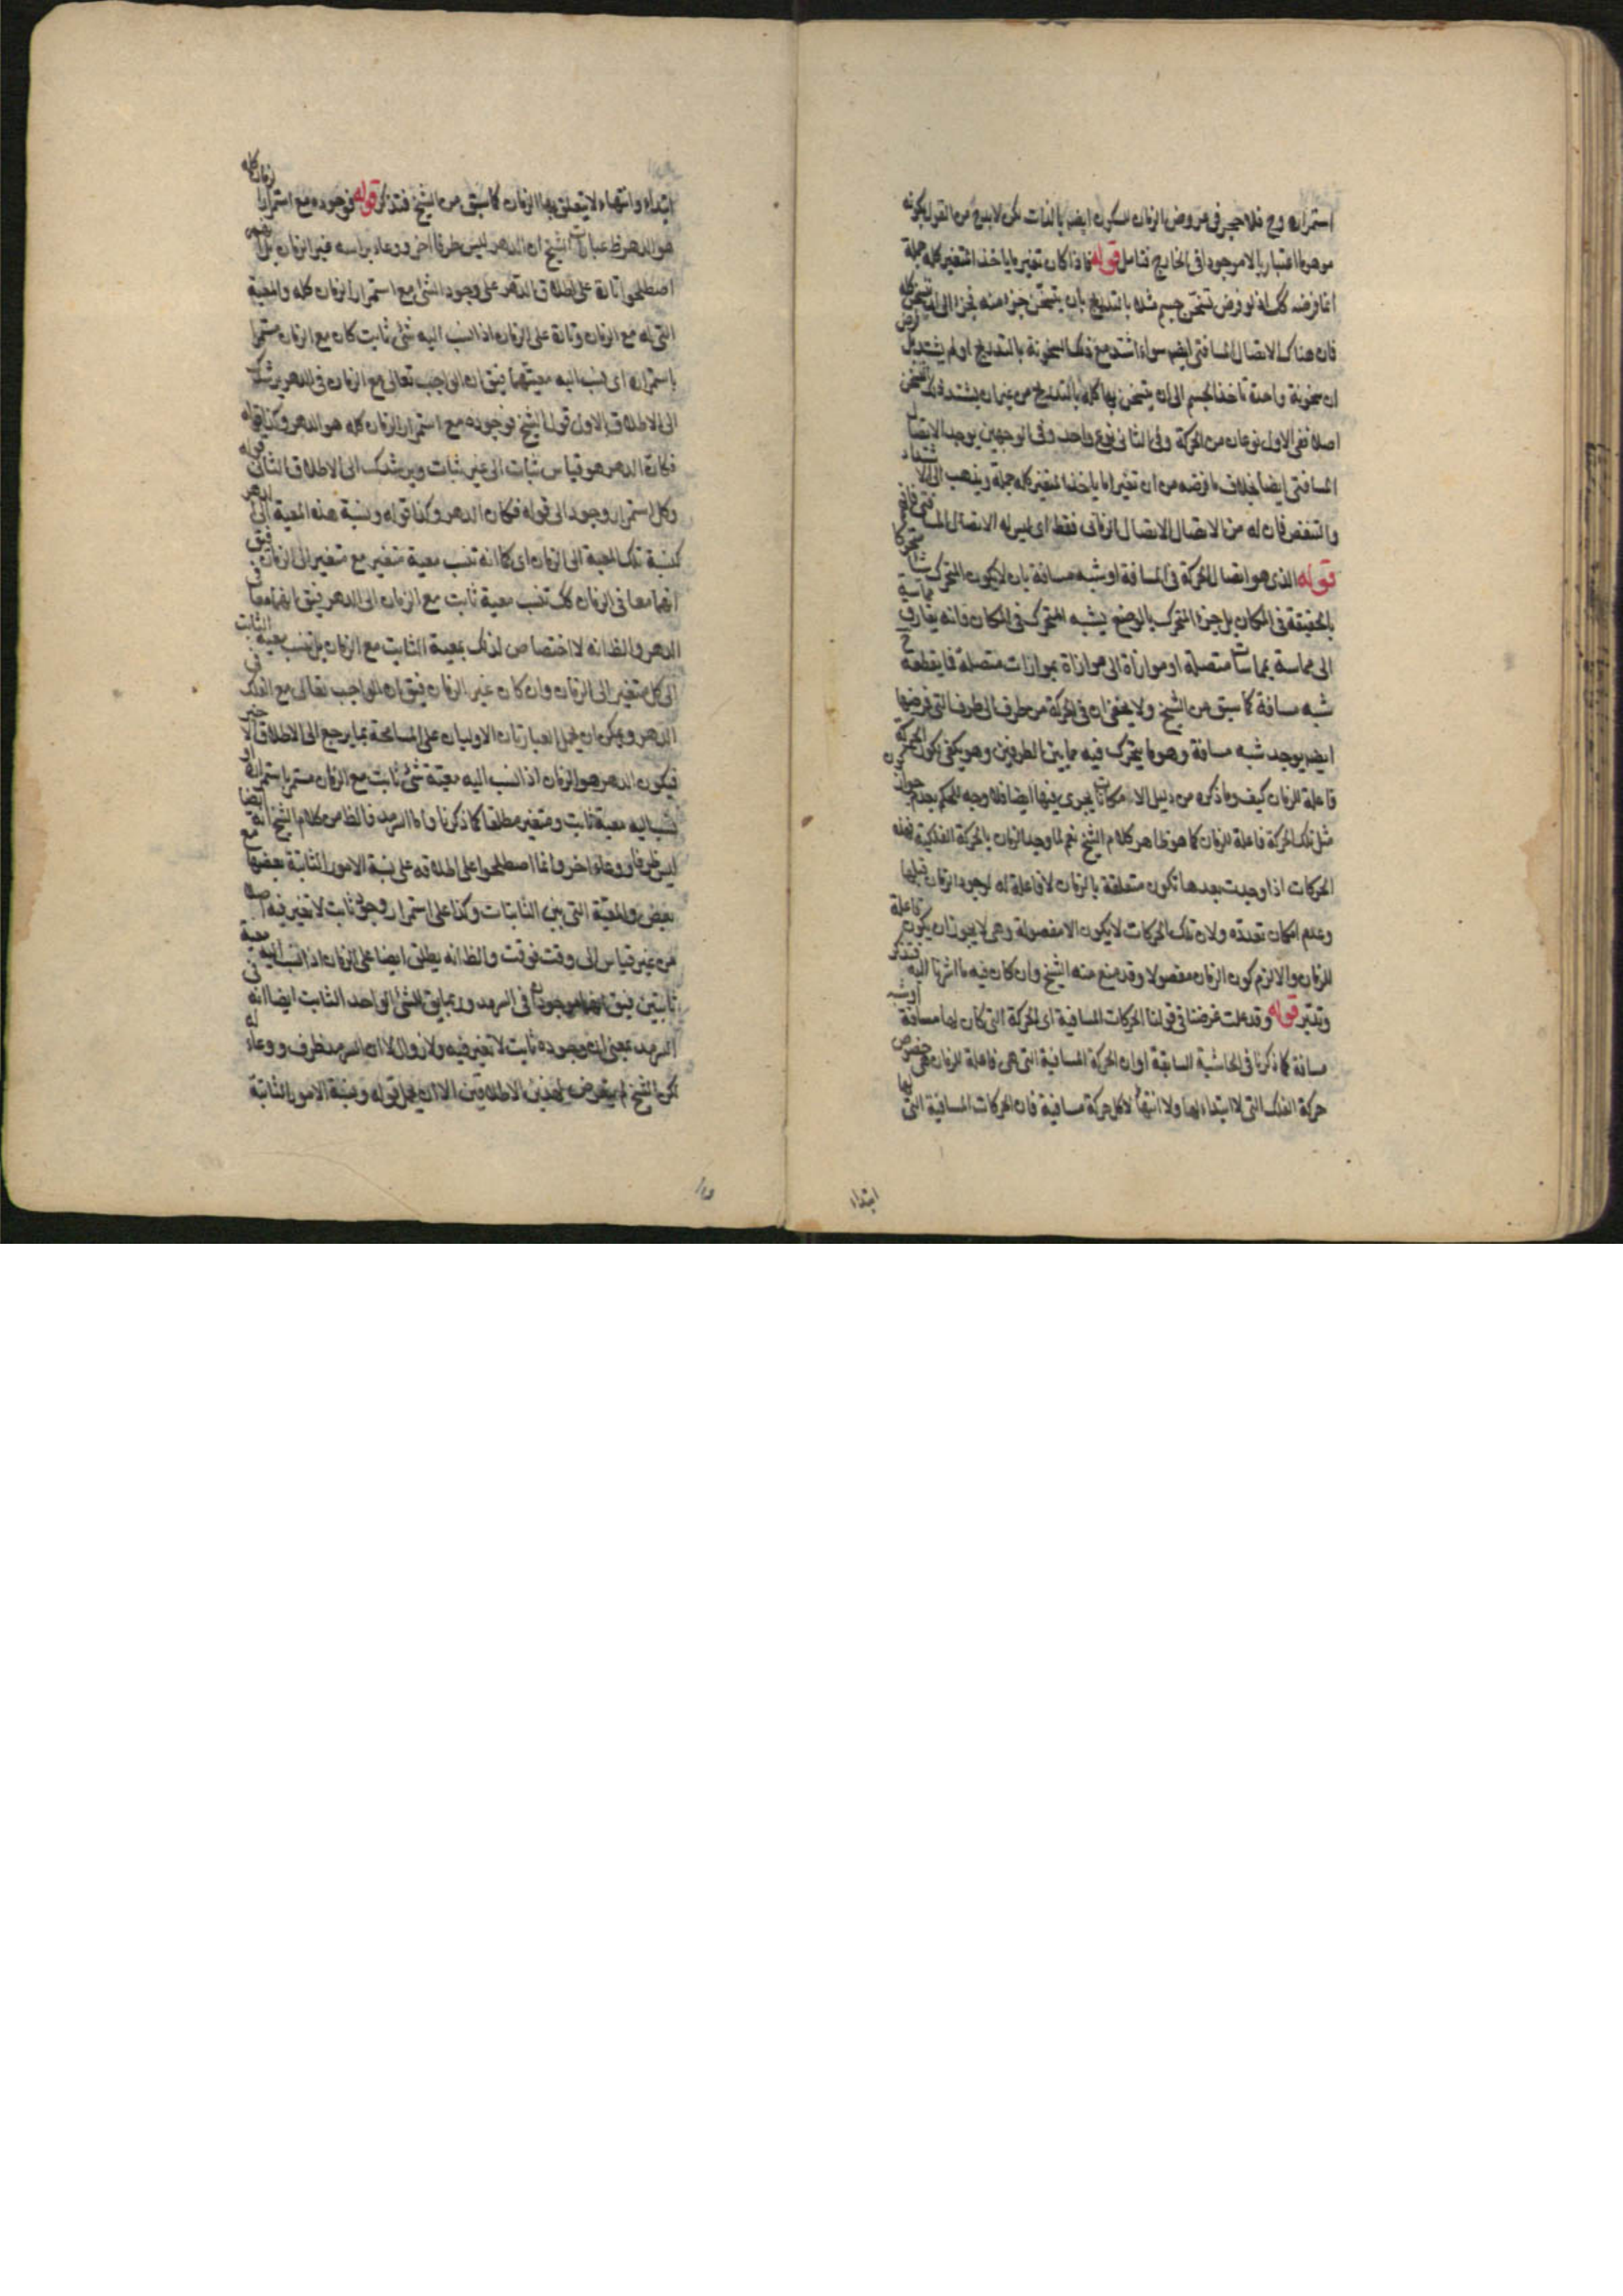 استمراره وح فلا حجر فى عروض الزمان للسكون ايضا بالذات لكن لا بد ح من القول بكونه
موهوما اعتباريا لا موجودا فى الخارج فتامل قوله فاذا كان تغيره ما ياخذ المتغير كله جملة
انما فرضه كك اذ لو فرض تسخن جسم مثلا بالتدريج بان يتسخن جزء منه فجزء الى ان يتسخن كله
فان هناك الاتصال المسافتى ايضا سواء اشتد مع ذلك السخونة بالتدريج او لم يشتد بل فرض
ان سخونة واحدة تاخذ الجسم الى ان يتسخن بها كله بالتدريج من غير ان يشتد ذلك التسخن
اصلا ففى الاول نوعان من الحركة وفى الثانى نوع واحد وفى الوجهين يوجد الاتصال
المسافتى ايضا بخلاف ما فرضه من ان تغيرا ما ياخذ المتغير كله جملة ويذهب الى الاشتداد
والتنقص فان له من الاتصال الاتصال الزمانى فقط اى ليس له الاتصال المسافتى فافهم
قوله الذى هو اتصال الحركة فى المسافة او شبه مسافة بان لا يكون المتحرك متحركا
بالحقيقة فى المكان بل جزء المتحرك بالوضع يشبه المتحرك فى المكان فانه يفارق مماسة
الى مماسة بمماسات متصلة او موازاة الى موازاة بموازات متصلة فما يقطعه ح
شبه مسافة كما سبق من الشيخ ولا يخفى ان فى الحركة من طرف الى طرف التى فرضها
ايضا يوجد شبه مسافة وهو ما يتحرك فيه ما بين الطرفين وهو يكفى لكون الحركة
فاعلة للزمان كيف وما ذكره من دليل الامكانات يجرى فيها ايضا فلا وجه للحكم بعدم جواز كون
مثل تلك الحركة فاعلة للزمان كما هو ظاهر كلام الشيخ نعم لما وجد الزمان بالحركة الفلكية فهذه
الحركات اذا وجدت بعدها تكون متعلقة بالزمان لا فاعلة له لوجود الزمان قبلها
وعدم امكان تعدده ولان تلك الحركات لا يكون الا مفصولة وهى لا يجوز ان يكون فاعلة
للزمان والا لزم كون الزمان مفصولا وقد منع منه الشيخ وان كان فيه ما اشرنا اليه فتذكر
وتدبر قوله وقد علمت غرضنا فى قولنا الحركات المسافية اى الحركة التى كان لها مسافة او شبه
مسافة كما ذكرنا فى الحاشية السابقة او ان الحركة المسافية التى هى فاعلة للزمان هى خصوص
حركة الفلك التى لا ابتداء لها ولا انتهاء لا كل حركة مسافية فان الحركات المسافية التى لها
ابتداء
ابتداء وانتهاء لا يتعلق بها الزمان كما سبق من الشيخ فتذكر قوله فوجوده مع استمرار الزمان كله
هو الدهر ظ عبارات الشيخ ان الدهر ليس ظرفا اخر ووعاء براسه غير الزمان بل انهم
اصطلحوا تارة على اطلاق الدهر على وجود الشئ مع استمرار الزمان كله والمعية
التى له مع الزمان وتارة على الزمان اذا نسب اليه شئ ثابت كان مع الزمان مستمرا
باستمراره اى ينسب اليه معيتهما فيق ان الواجب تعالى مع الزمان فى الدهر يرشدك
الى الاطلاق الاول قول الشيخ فوجوده مع استمرار الزمان كله هو الدهر وكذا قوله
فكان الدهر هو قياس ثبات الى غير ثبات ويرشدك الى الاطلاق الثانى قوله
وكل استمرار وجود الى قوله فكان الدهر وكذا قوله ونسبة هذه المعية الى الدهر
كنسبة تلك المعية الى الزمان اى كما انه تنسب معية متغير مع متغير الى الزمان فيق
انهما معا فى الزمان كك تنسب معية ثابت مع الزمان الى الدهر فيق انهما معا فى
الدهر والظ انه لا اختصاص لذلك بمعية الثابت مع الزمان بل تنسب معية الثابت
الى كل متغير الى الزمان وان كان غير الزمان فيق ان الواجب تعالى مع الفلك فى
الدهر ويمكن ان يحمل العبارتان الاوليان على المسامحة بما يرجع الى الاطلاق الاخير
فيكون الدهر هو الزمان اذا نسب اليه معية شئ ثابت مع الزمان مستمر باستمراره او
نسب اليه معية ثابت ومتغير مطلقا كما ذكرنا واما السرمد فالظ من كلام الشيخ انه ايضا
ليس ظرفا ووعاء اخر وانما اصطلحوا على اطلاقه على نسبة الامور الثابتة بعضها مع
بعض والمعية التى بين الثابتات وكذا على استمرار وجود ثابت لا تغير فيه اصلا
من غير قياس الى وقت فوقت والظ انه يطلق ايضا على الزمان اذا نسب اليه معية
ثابتين فيق انهما موجودان فى السرمد وربما يق للشئ الواحد الثابت ايضا انه فى
السرمد بمعنى ان وجوده ثابت لا تغير فيه ولا زوال لا ان السرمد ظرف ووعاء له
لكن الشيخ لم يتعرض لهذين الاطلاقين الا ان يحمل قوله ونسبة الامور الثابتة